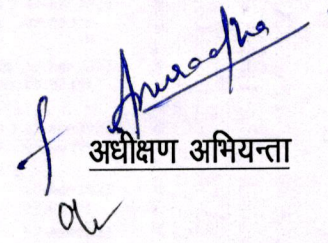 Anuradha
अधीक्षण अभियन्ता